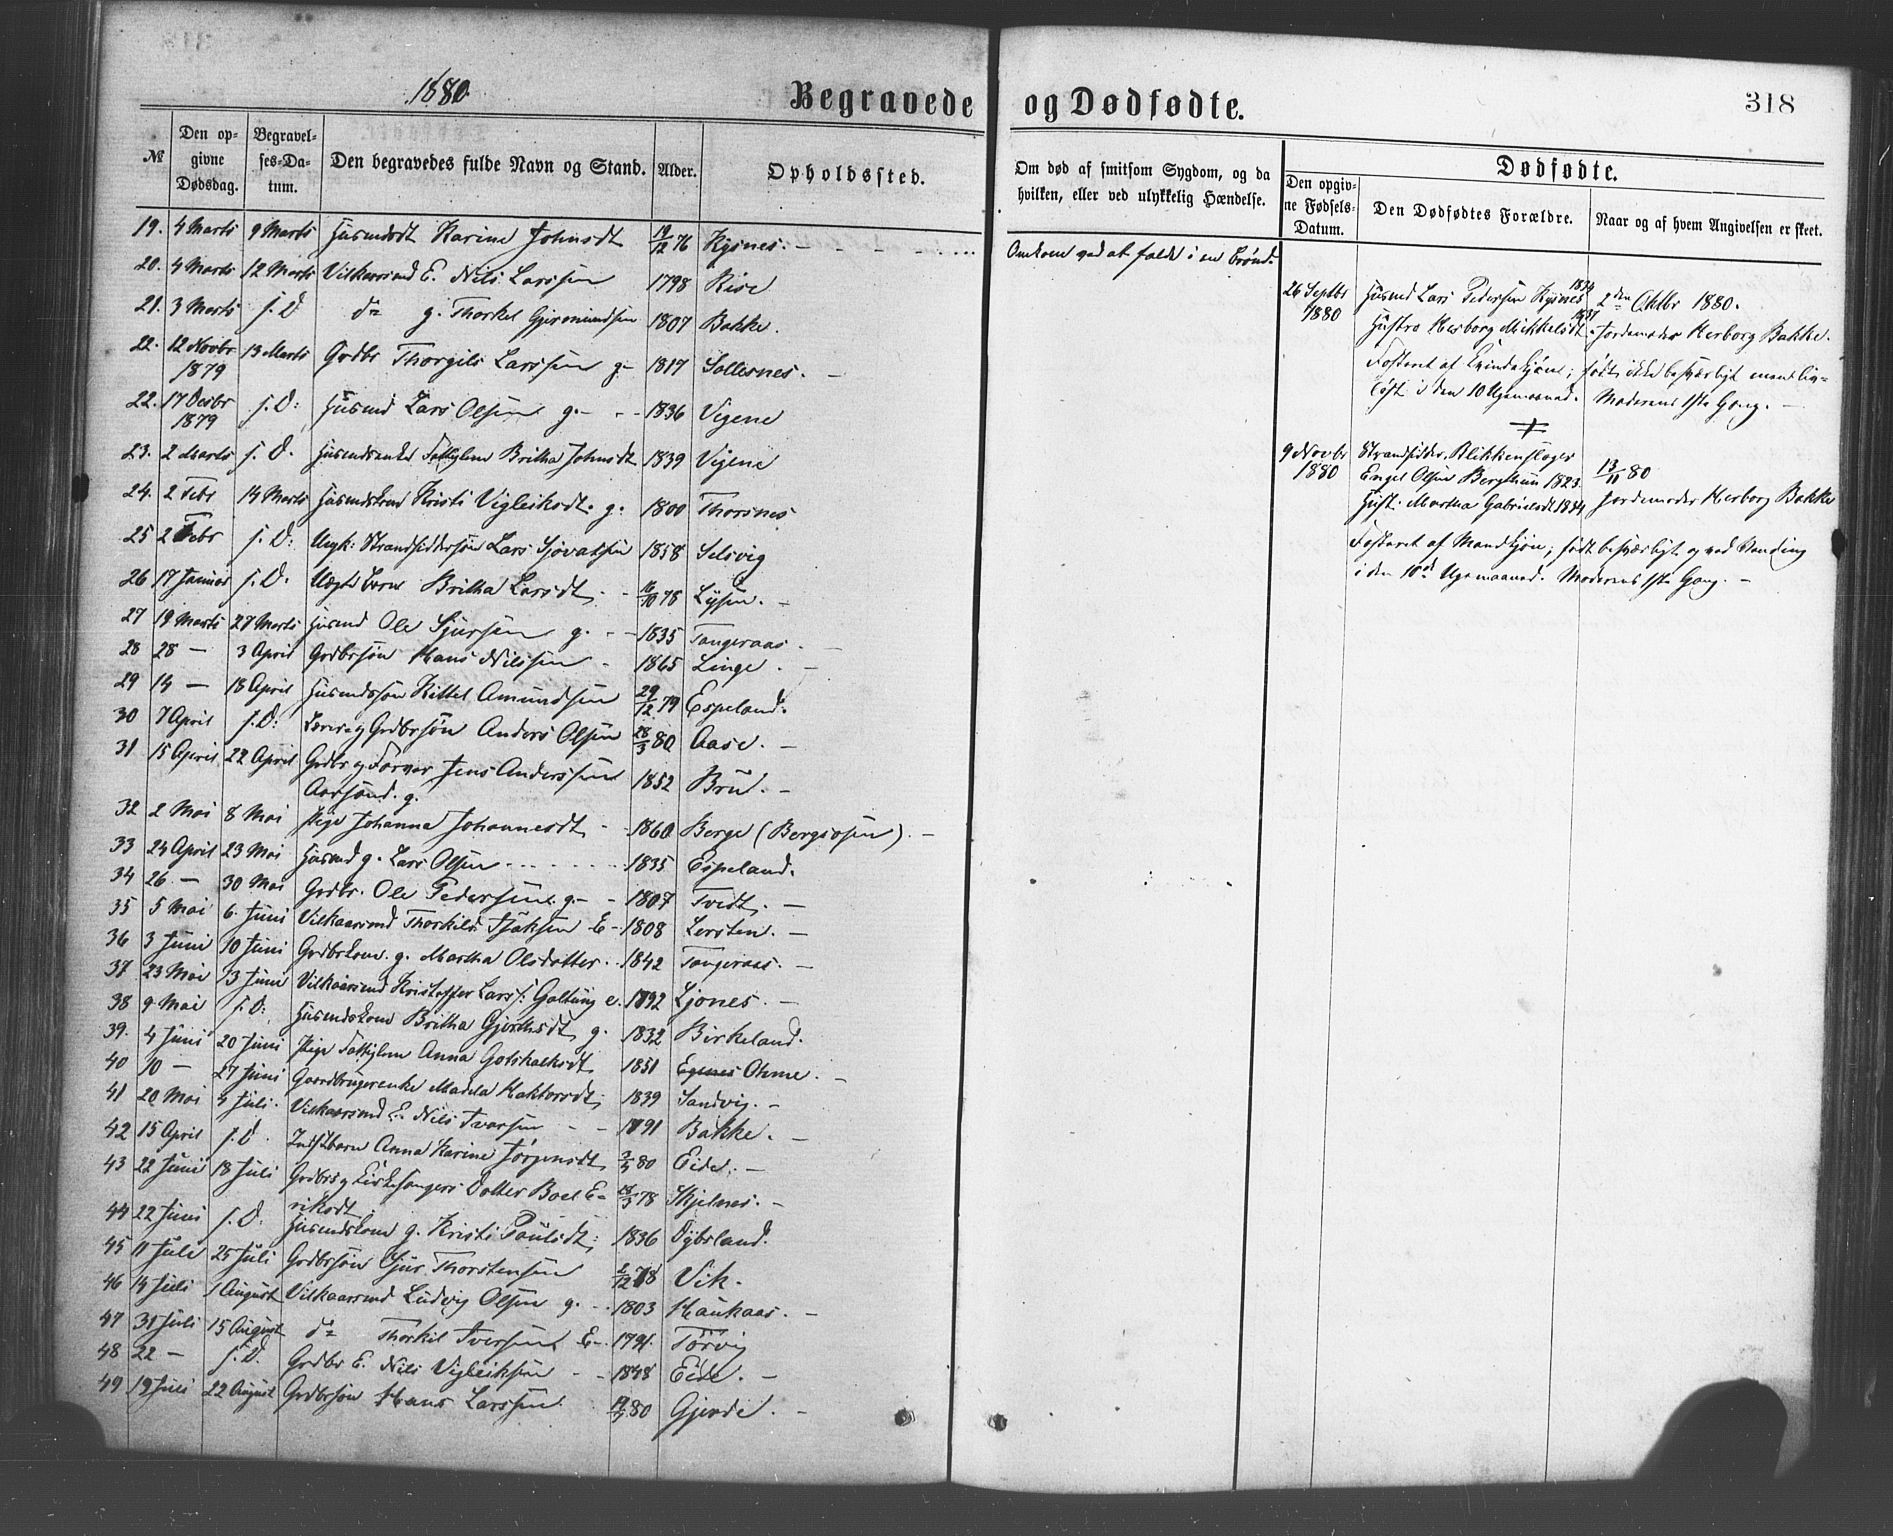 1880.
Begravede og Dødfødte.
318
№ Den opgivne Dødsdag. Begravelses-Datum. Den begravedes fulde Navn og Stand. Alder. Opholdssted.
Om død af smitsom Sygdom, og da hvilken, eller ved ulykkelig Hændelse.
Dødfødte.
Den opgivne Fødsels-Datum. Den Dødfødtes Forældre. Naar og af hvem Angivelsen er skeet.
19. 4 Marts 9 Marts Karine Johnsdt 19/12 76 Kysnes.
Omkom ved at falde i en Brønd.
20. 4 Marts 12 Marts Vilkaarsmd E. Nils Larssen 1798 Rise
21. 3 Marts s. D do g. Thorkel Geirmundsen 1807 Bakke.
22. 12 Novbr 1879 13 Marts Grdbr Thorgils Larssen g. 1817 Sollesnes.
22. 17 Decbr 1879 s. D: Husmd Lars Olsen g. 1836 Vigene
23. 2 Marts s. D. Husmdsenke Fattiglem Britha Johnsdt 1839 Vigene
24. 2 Febr 14 Marts Husmdskone Kristi Vigleiksdt. g. 1800 Thorsnes
25 2 Febr s. D: Ungk: Strandsiddersøn Lars Sjovatsen 1858 Selsvig
26 17 Januar s. D. Britha Larsdt. 16/10 78 Lysen.
27 19 Marts 27 Marts Husmd Ole Sjursen g. 1835 Tangeraas
28 28 — 3 April Grdbrsøn Hans Nilssen 1865 Linge.
29 14 — 18 April Husmdssøn Kittel Amundsen 29/12 79 Espeland.
30 7 April s. D: Lærer og Grdbrsøn Anders Olsen 28/3 80 Aase.
31 15 April 22 April Grdbr og Farver Jens Anderssen 1852 Bru.
Aarsand. g.
32 2 Mai 8 Mai Pige Johanna Johannesdt 1860 Berge (Bergsosen).
33 24 April 23 Mai Husmd g. Lars Olsen 1835 Espeland.
34 26 — 30 Mai Grdbr. Ole Pedersen. g. 1807 Tvedt.
35 5 Mai 6. Juni Vilkaarsmd Thorkild Isaksen E 1808 Lersten.
36 3 Juni 10 Juni Grdbrkone. g. Martha Olsdatter 1842 Tangeraas.
37 23 Mai 13 Juni Vilkaarsmd Kristoffer Lars: Galtung e. 1792 Ljones.
38 9 Mai s. D: Husmdskone Britha Gjerthsdt g. 1832 Birkeland.
39. 4 Juni 20 Juni Pige Fattiglem Anna Gotskalksdt 1851 Oheme.
40 10 — 27 Juni Gaardbrugerenke Madela Haktorsdt. 1839 Sandvig.
41 20 Mai 4 Juli. Vilkaarsmd E. Nils Ivarsen 1791 Bakke.
42 15 April s. D. Indstbarn Anna Karine Jørgensdt 80 Eide.
43 22 Juni 18 Juli Grdbrs og Kirkesangers Datter Boel E- 78 Skjelnes.
riksdt.
44 22 Juni s. D. Husmdskone g. Kristi Paulsdt. 1836 Dybsland.
45 11 Juli 25 Juli Grdbrsøn Sjur Thorstensen 78 Vik.
46 14 Juli 1 August Vilkaarsmd Ludvig Olsen g. 1803 Haukaas.
47 31 Juli 15 August do Thorkil Iversen E 1791. Tørvig
48 22 — s. D. Grdbr E. Nils Vigleiksen 1848 Eide.
49 19 Juli 22 August Grdbrsøn Hans Larssen 80 Gjerde.
26 Septbr 1880
Husmd Lars Pedersen Kysnes 1834
Hustro Herborg Mikkelsdt 1837
Fosteret af Qvindekjøn; født ikke besværligt men liv-
løst i den 10 Ugemaaned. Moderens 1ste Gang.
2den Oktbr 1880.
Jordemoder Herborg Bakke.
9 Novbr 1880
Strandsidder, Blikkenslager
Engel Olsen Berghuus 1823
Hust. Martha Gabrielsdt 1834
13/11 80
Jordemoder Herborg Bakke
Fosteret af Mandkjøn; født besværligt og ved Vending
i den 10de Ugemaaned. Moderens 1ste Gang.